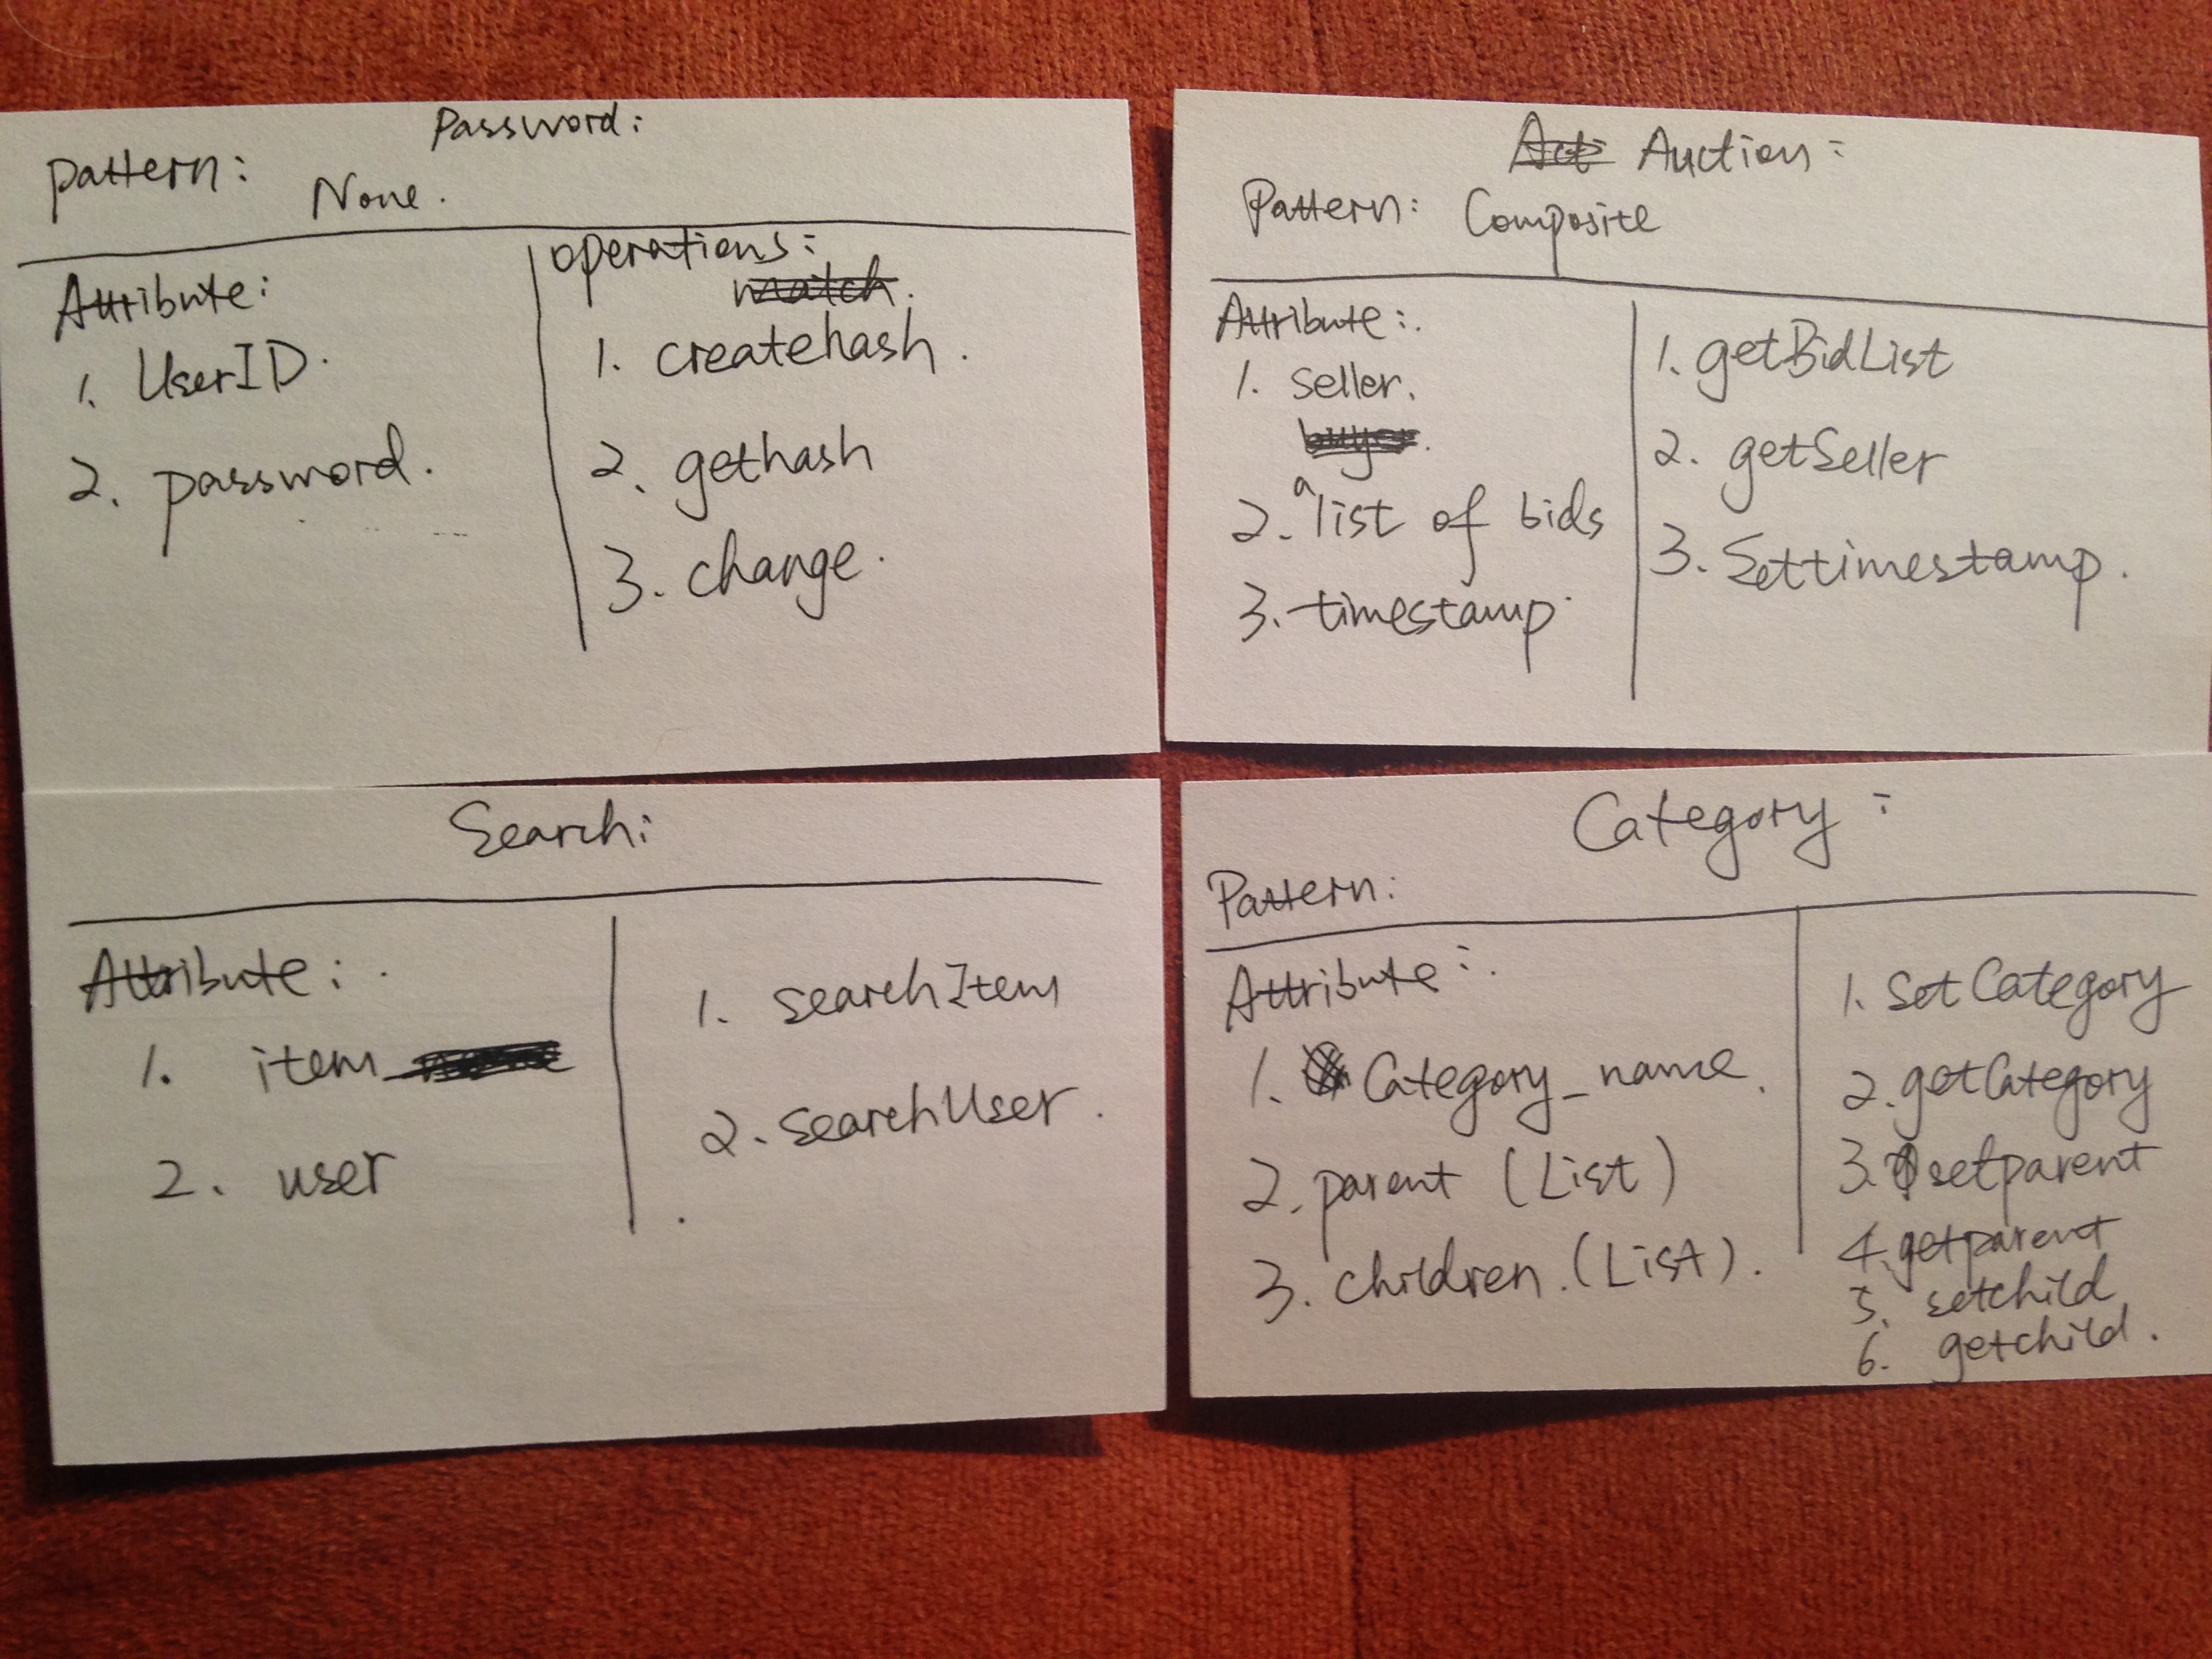 Password:
Pattern:
None.
Attribute:
1. UserID.
2. password.
operations:
match.
1. createhash.
2. gethash
3. change.
Act Auction:
Pattern: Composite
Attribute:
1. seller.
buyer.
2. a list of bids
3. timestamp.
1. getBidList
2. getSeller
3. Settimestamp.
Search:
Attribute:
1. item
2. user
1. searchItem
2. searchUser.
Category:
Pattern:
Attribute:
1. Category_name.
2. parent (List)
3. children. (List).
1. SetCategory
2. getCategory
3. setparent
4. getparent
5. setchild
6. getchild.